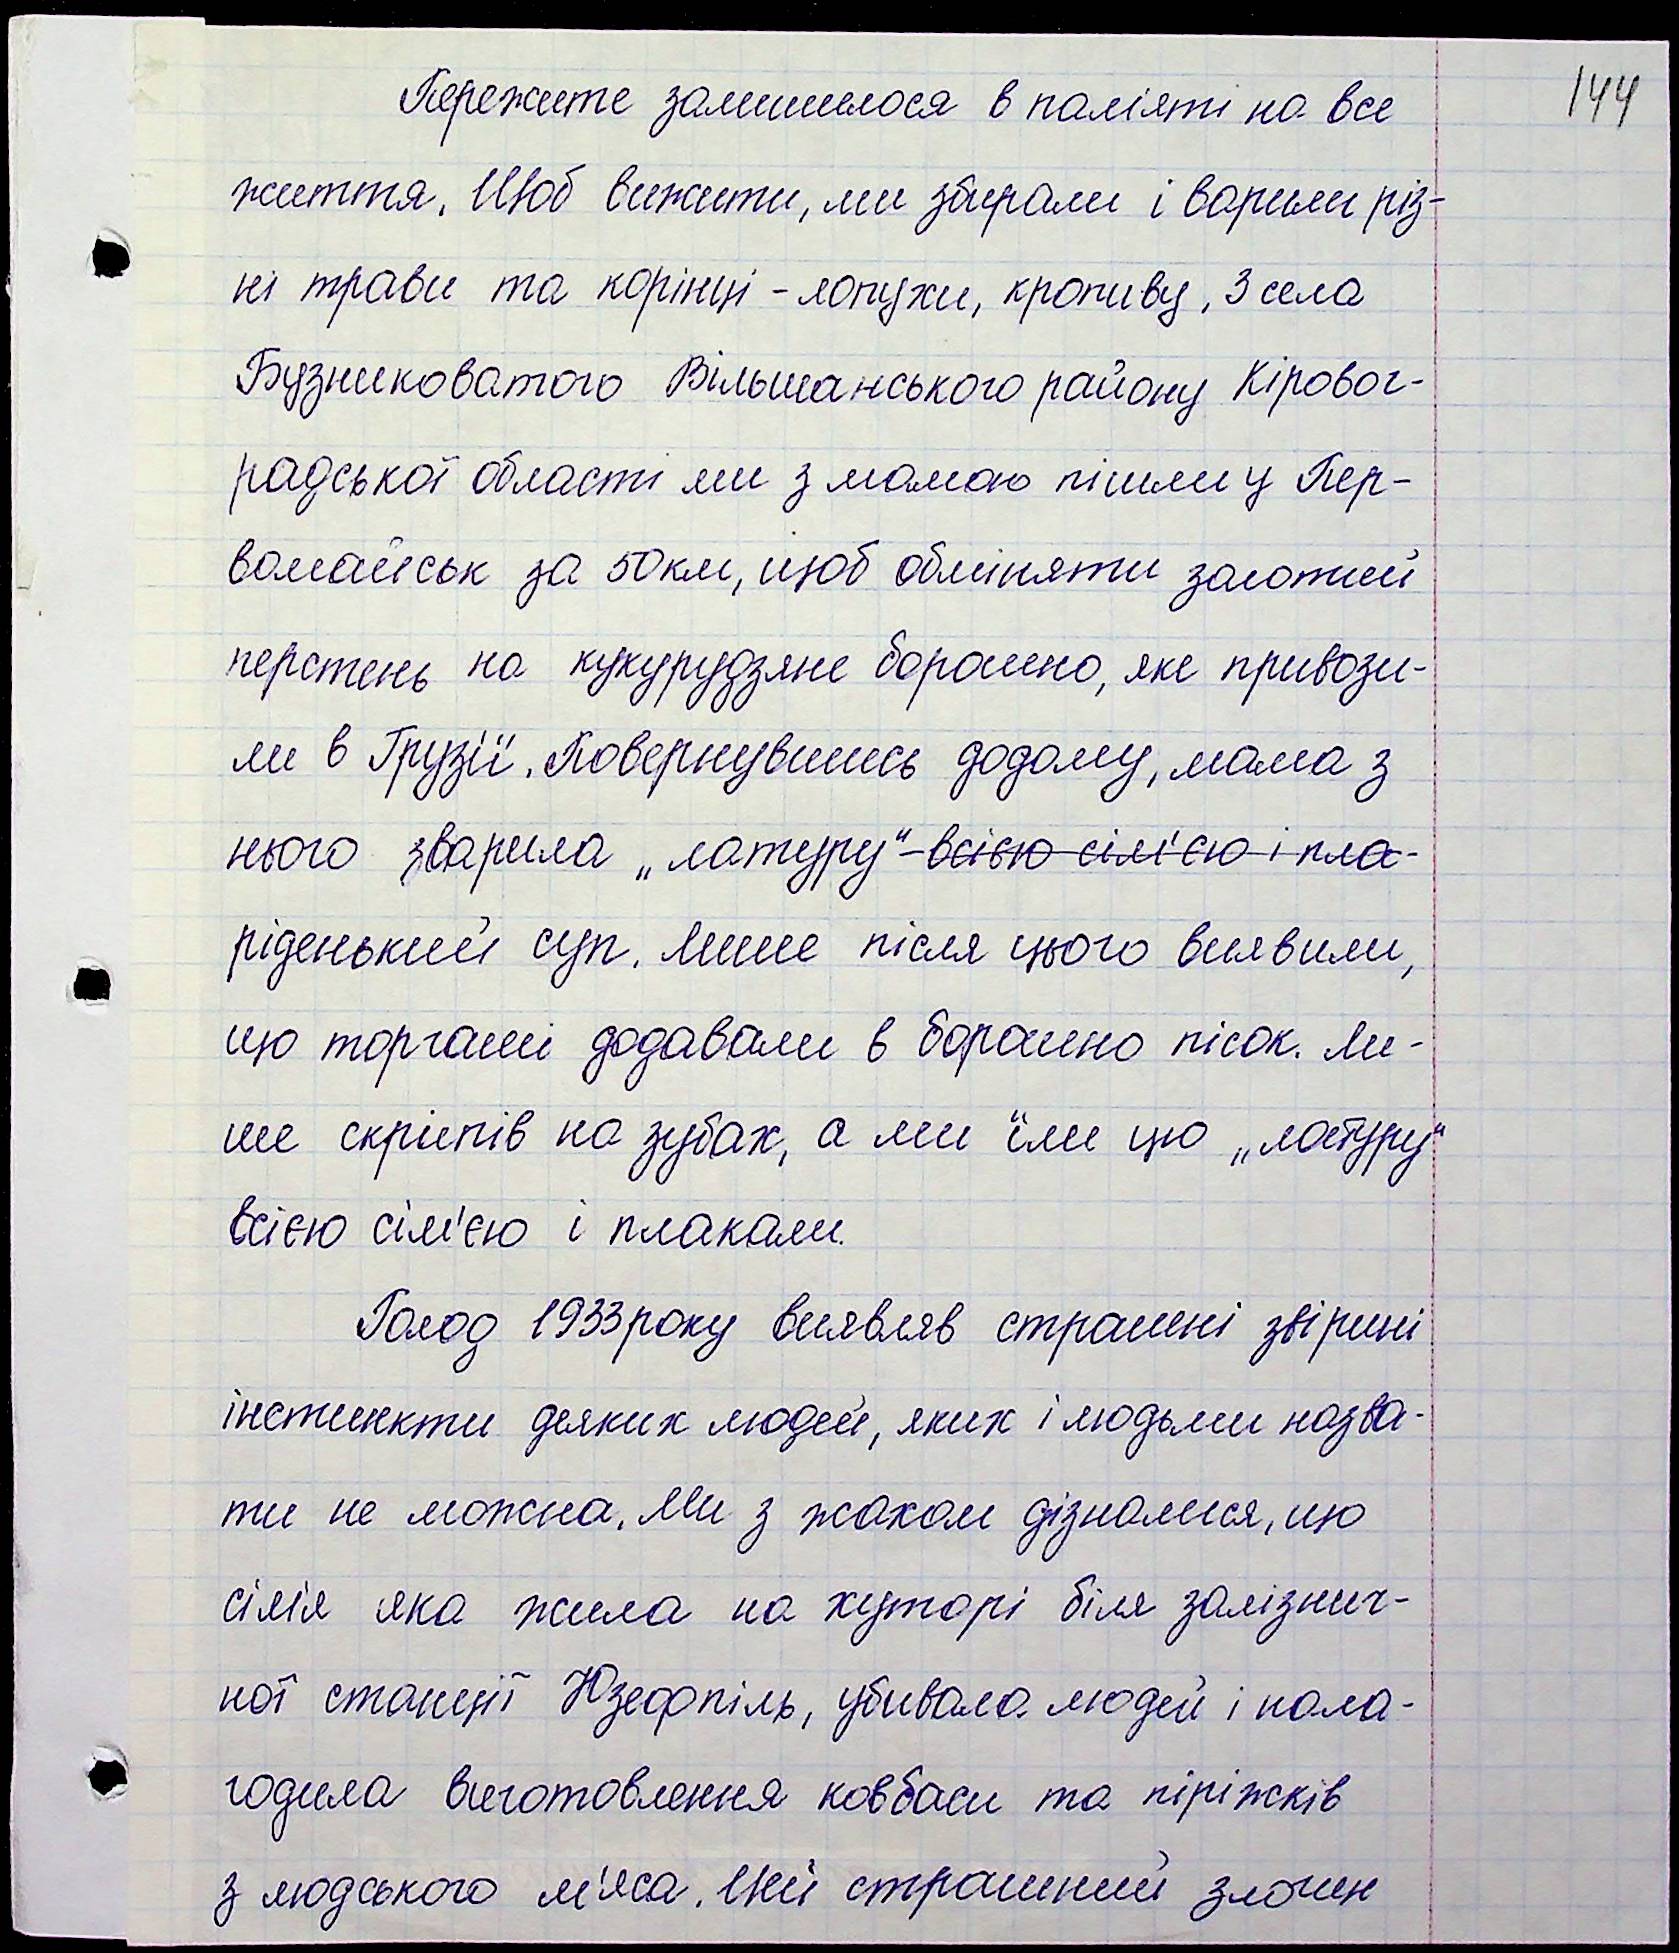 144
Пережите залишилося в паміяті на все
життя. Щоб вижити, ми збирали і варили різ-
ні трави та корінці - лопухи, кропиву, З села
Бузниковатого Вільшанського району Кіровог-
радської області ми з мамою пішли у Пер-
вомайськ за 50 км, щоб обміняти золотий
перстень на кукурудзяне борошно, яке привози-
ли в Грузії. Повернувшись додому, мама з
нього зварила „матуру“ всією сім'єю і пла-
ріденький суп. Лише після цього виявили,
що торгаші додавали в борошно пісок. Ли-
ше скріпів на зубах, а ми їли цю „матуру“
всією сім'єю і плакали.
Голод 1933 року виявляв страшні звірині
інстинкти деяких людей, яких і людьми назва-
ти не можна. Ми з жахом дізналися, що
сім'я яка жила на хуторі біля залізнич-
ної станції Юзефпіль, убивала людей і нала-
годила виготовлення ковбаси та піріжків
з людського м'яса. Цей страшний злочин